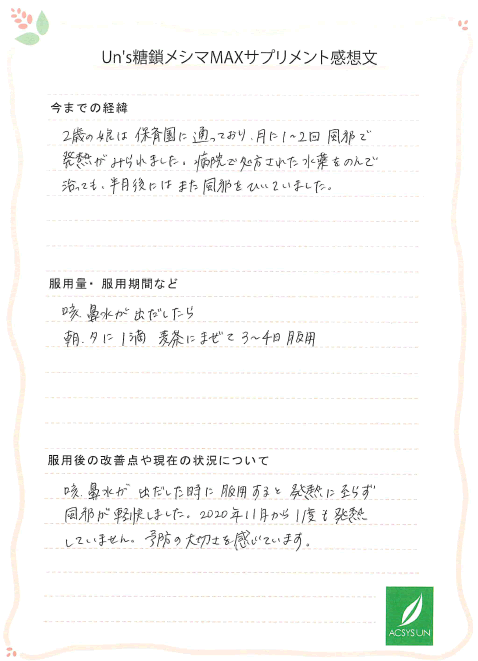 Un's糖鎖メシマMAXサプリメント感想文
今までの経緯
2歳の娘は保育園に通っており、月に1~2回風邪で
発熱がみられました。病院で処方された水薬をのんで
治っても、半月後にはまた風邪をひいていました。
服用量・服用期間など
咳、鼻水が出だしたら
朝、夕に1滴 麦茶にまぜて3~4日服用
服用後の改善点や現在の状況について
咳、鼻水が出だした時に服用すると発熱に至らず
風邪が軽快しました。2020年11月から1度も発熱
していません。予防の大切さを感じています。
ACSYS'UN